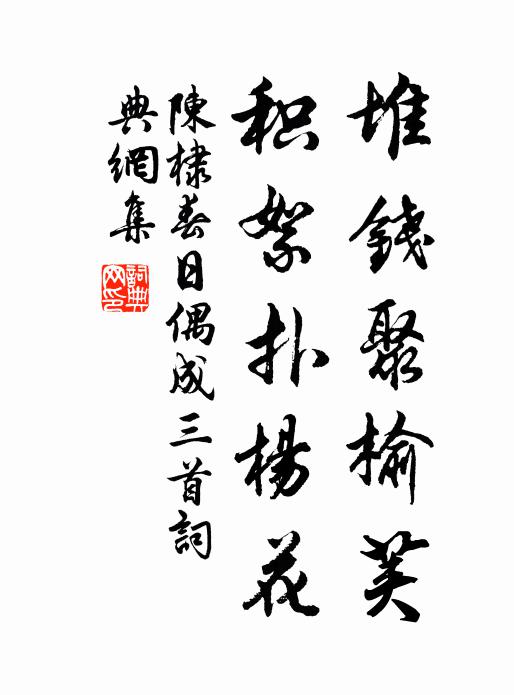 堆錢聚榆荚
积絮扑楊花
陳棣春日偶成三首詞
典網集
詞典
网印